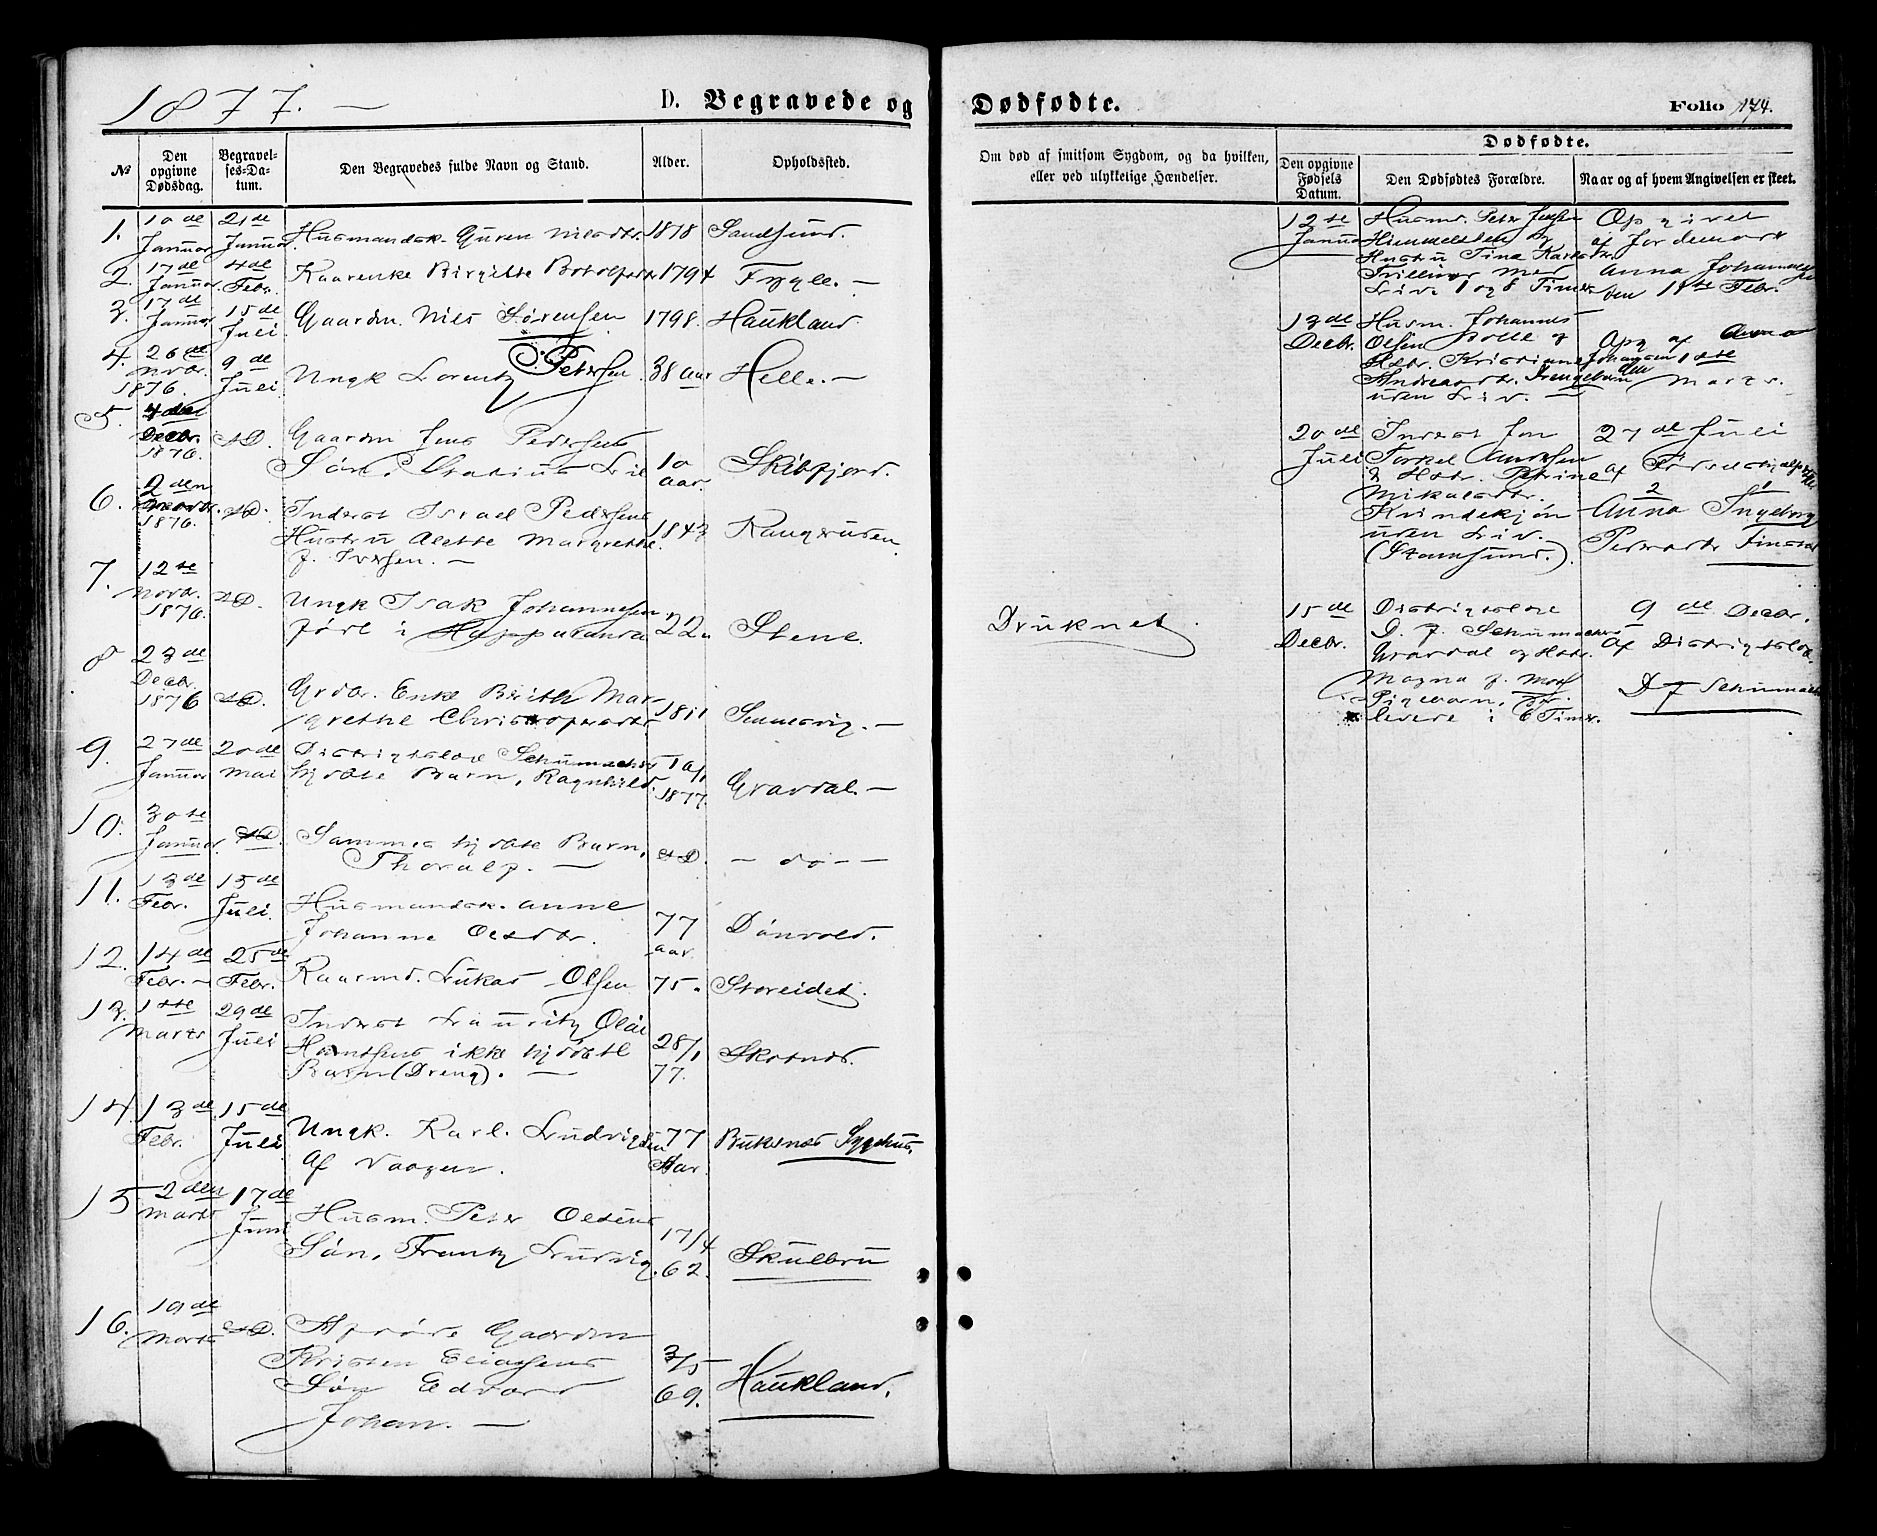 1877. —
D. Begravede og
№
Den opgivne Dødsdag.
Begravelses-Datum.
Den Begravedes fulde Navn og Stand.
Alder.
Opholdssted.
1. 10de Januar 21de Januar Husmandsk. Guren Nilsdtr. 1818 Sandsund.
2. 17de Januar. 4de Febr. Kaarenke Birgitte 1794 Fygle. —
3. 17de Januar 15de Juli Gaardm. Nils Sørensen 1798. Haukland
4. 26de Nvbr. 1876. 9de Juli Ungk Lorentz Petersen 38 aar Helle. —
5. Decbr. 1876. Gaardm Jens Pedersens
Søn, Lil 10 aar. Skibfjord.
6. 2den 1876. Inderst Israel Pedersens
Hustru Alette Margrethe 1843
f. Iversen. —
7. 12te Novbr. 1876. Ungk Isak Johannesen
født i Happaranda 22 Stene.
8 23de Decbr. 1876 Grdbr. Enke Berith Mar-
grethe Christophersdtr. 1811 Sennesvig. —
9. 27de Januar 20de Mai Distriktslæge Schumachers
hjdøbte Barn, Ragnhild. 10/1 1877. Gravdal. —
10. 30te Januar. Sammes hjdøbte Barn,
Thoralf. — — do — —
11. 13de Febr. 15de Juli Husmandsk. Anne
Johanna Olsdtr. 77 aar. Dønvold.
12. 14de Febr. — 25de Febr. Kaarmd. Lukas Olsen 75 Storeidet.
13. 1ste Marts 29de Juli Inderst Lauritz Olai
Hansens ikke hjdøbte
Barn (Dreng). — 28/1 77. Skotnes.
14. 13de Febr. 15de Juli Ungk. Karl Ludvigsen
af Vaagen. 77 Aar. Buksnes Sygehus.
15 2den Marts 17de Juni Husm. Peter Olsens
Søn, Frantz Ludvig. 17/4 62. Skulbru
16. 10de Marts Afdøde Gaardm
Kristen Eliassens
Søn Edvard
Johan. — 3/5 69. Haukland.
Dødfødte.
Folio 174.
Om død af smitsom Sygdom, og da hvilken, eller ved ulykkelige Hændelser.
Dødfødte.
Den opgivne Fødsels Datum.
Den Dødfødtes Forældre.
Naar og af hvem Angivelsen er skeet.
Druknet.
12te Januar Husmd. Peter Jensen
Himmelsten og
Hustru Tina
Tvillinger med
Liv 1 og 8 Timer.
Opgivet
af Jordemor
Anna
den 11te Febr.
13de Decbr. Husm. Johannes
Olsen Bolle og
Hstr. Kristiane
Andreasdtr. Drengebarn
uden Liv. —
Opg af Anna
Johansen den 1ste
Marts.
20de Juli Inderst Jon
Torkel Andersen
& Hstr. Petrine
Mikalsdtr.
Kvindekjøn
uden Liv.
(Stamsund.)
27de Juli
af
Anna Ingeborg
Pedersdtr Finstad
15de Decbr. Distriktslæge
D. F. Schumacher
Gravdal og Hstr.
Magna f.
Pigebarn,
levede i 6 Timer.
9de Decbr.
af Distriktslæge
D F Schumacher